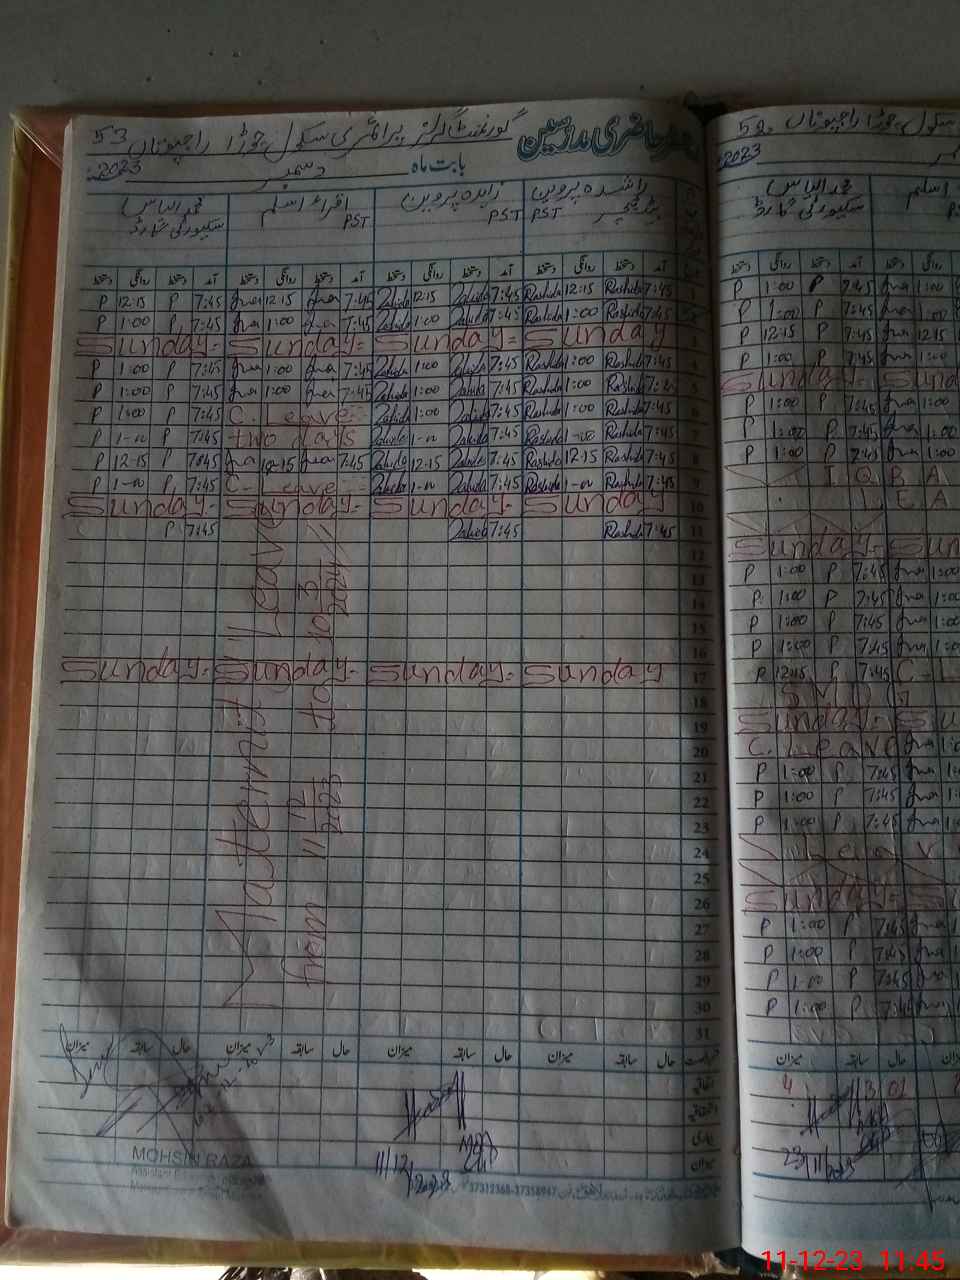 حاضری مدرسین گورنمنٹ گرلز پرائمری سکول جوڑا راجپوتاں 53
بابت ماہ دسمبر 2023ء
راشدہ پروین زاہدہ پروین اقراء اسلم محمد الیاس
PST ہیڈ ٹیچر PST PST سیکیورٹی گارڈ
آمد دستخط روانگی دستخط آمد دستخط روانگی دستخط آمد دستخط روانگی دستخط آمد دستخط روانگی دستخط
P 12:15 P 7:45 Iqra 12:15 Iqra 7:45 Zahida 12:15 Zahida 7:45 Rashida 12:15 Rashida 7:45 1
P 1:00 P 7:45 Iqra 1:00 Iqra 7:45 Zahida 1:00 Zahida 7:45 Rashida 1:00 Rashida 7:45 2
Sunday = Sunday = Sunday = Sunday 3
P 1:00 P 7:45 Iqra 1:00 Iqra 7:45 Zahida 1:00 Zahida 7:45 Rashida 1:00 Rashida 7:45 4
P 1:00 P 7:45 Iqra 1:00 Iqra 7:45 Zahida 1:00 Zahida 7:45 Rashida 1:00 Rashida 7:45 5
P 1:00 P 7:45 C. Leave Zahida 1:00 Zahida 7:45 Rashida 1:00 Rashida 7:45 6
P 1-00 P 7:45 two days Zahida 1-00 Zahida 7:45 Rashida 1-00 Rashida 7:45 7
P 12-15 P 7:45 Iqra 12-15 Iqra 7:45 Zahida 12:15 Zahida 7:45 Rashida 12:15 Rashida 7:45 8
P 1-00 P 7:45 C. Leave Zahida 1-00 Zahida 7:45 Rashida 1-00 Rashida 7:45 9
Sunday = Sunday = Sunday = Sunday 10
P 7:45 Zahida 7:45 Rashida 7:45 11
12
13
14
15
16
Sunday = Sunday = Sunday = Sunday 17
18
19
20
21
22
23
24
25
26
27
28
29
30
31
Matternity Leave
from 11 12 2023 to 10 3 2024
حال سابقہ میزان حال سابقہ میزان حال سابقہ میزان حال سابقہ میزان
اتفاقیہ
میزان
11/12/2023
MOHSIN RAZA
37312368-37358967
52
2023ء
محمد الیاس
سیکیورٹی گارڈ
P 1:00 P 7:45 Iqra 1:00
P 1:00 P 7:45 Iqra 1:00
P 12:15 P 7:45 Iqra 12:15
P 1:00 P 7:45 Iqra 1:00
Sunday = Sun
P 1:00 P 7:45 Iqra 1:00
P 1:00 P 7:45 Iqra 1:00
P 1:00 P 7:45 Iqra 1:00
I Q B A
L E A
Sunday = Sun
P 1:00 P 7:45 Iqra 1:00
P 1:00 P 7:45 Iqra 1:00
P 1:00 P 7:45 Iqra 1:00
P 1:00 P 7:45 Iqra 1:00
P 12:15 P 7:45 C.
Sunday = Su
C. Leave Iqra
P 1:00 P 7:45 Iqra
P 1:00 P 7:45 Iqra
P 1:00 P 7:45 Iqra
Leav
Sunday = S
P 1:00 P 7:45 Iqra
P 1:00 P 7:45 Iqra
P 1-00 P 7:45 Iqra
P 1:00 P 7:45 Iqra
میزان سابقہ حال
4 3 01
11-12-23 11:45